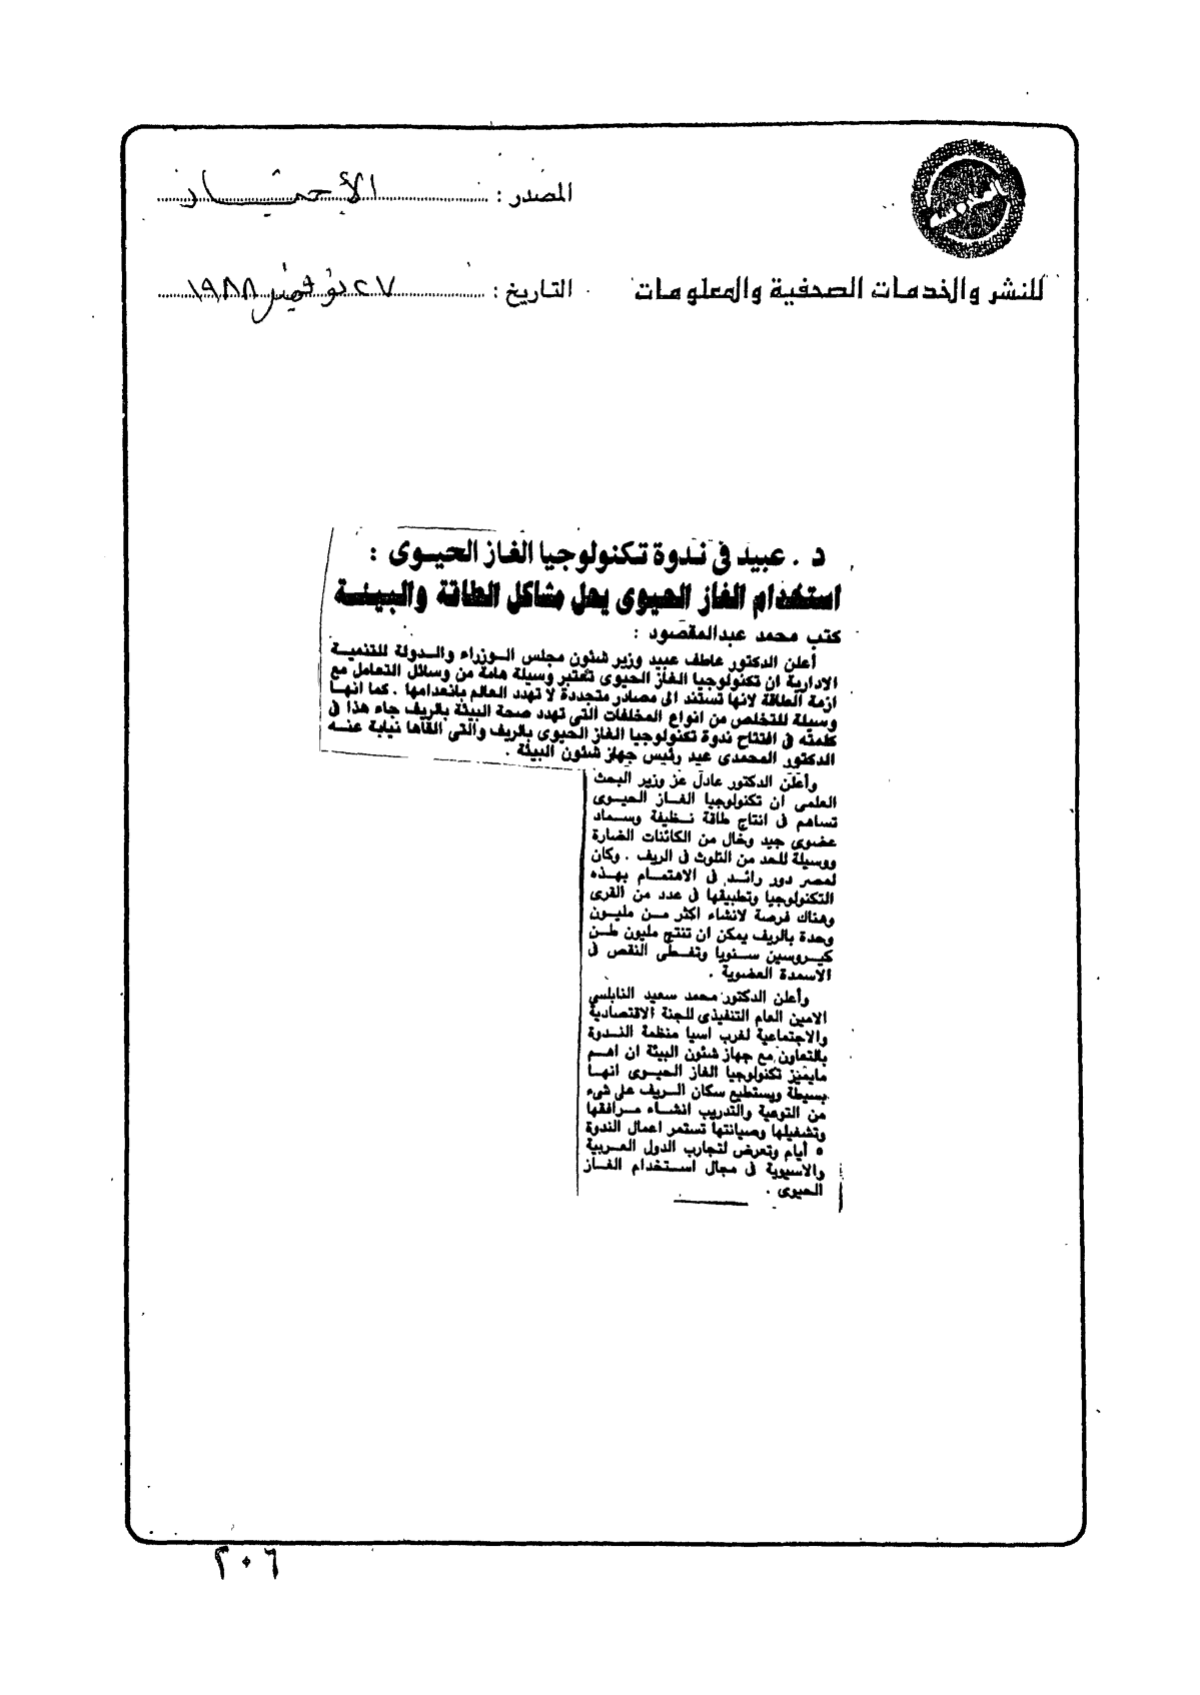 المصدر : الأخبار
للنشر والخدمات الصحفية والمعلومات
التاريخ : ٢٧ نوفمبر ١٩٨٨
د . عبيد فى ندوة تكنولوجيا الغاز الحيوى :
استخدام الغاز الحيوى يحل مشاكل الطاقة والبيئة
كتب محمد عبدالمقصود :
أعلن الدكتور عاطف عبيد وزير شئون مجلس الوزراء والدولة للتنمية
الادارية ان تكنولوجيا الغاز الحيوى تعتبر وسيلة هامة من وسائل التعامل مع
ازمة الطاقة لانها تستند الى مصادر متجددة لا تهدد العالم بانعدامها . كما انها
وسيلة للتخلص من انواع المخلفات التى تهدد صحة البيئة بالريف جاء هذا فى
كلمته فى افتتاح ندوة تكنولوجيا الغاز الحيوى بالريف والتى القاها نيابة عنه
الدكتور المحمدى عيد رئيس جهاز شئون البيئة .
وأعلن الدكتور عادل عز وزير البحث
العلمى ان تكنولوجيا الغاز الحيوى
تساهم فى انتاج طاقة نظيفة وسماد
عضوى جيد وخال من الكائنات الضارة
ووسيلة للحد من التلوث فى الريف . وكان
لمصر دور رائد فى الاهتمام بهذه
التكنولوجيا وتطبيقها فى عدد من القرى
وهناك فرصة لانشاء اكثر من مليون
وحدة بالريف يمكن ان تنتج مليون طن
كيروسين سنويا وتغطى النقص فى
الاسمدة العضوية .
وأعلن الدكتور محمد سعيد النابلسي
الامين العام التنفيذى للجنة الاقتصادية
والاجتماعية لغرب اسيا منظمة الندوة
بالتعاون مع جهاز شئون البيئة ان اهم
مايميز تكنولوجيا الغاز الحيوى انها
بسيطة ويستطيع سكان الريف على شىء
من التوعية والتدريب انشاء مرافقها
وتشغيلها وصيانتها تستمر اعمال الندوة
٥ أيام وتعرض لتجارب الدول العربية
والاسيوية فى مجال استخدام الغاز
الحيوى .
٢٠٦